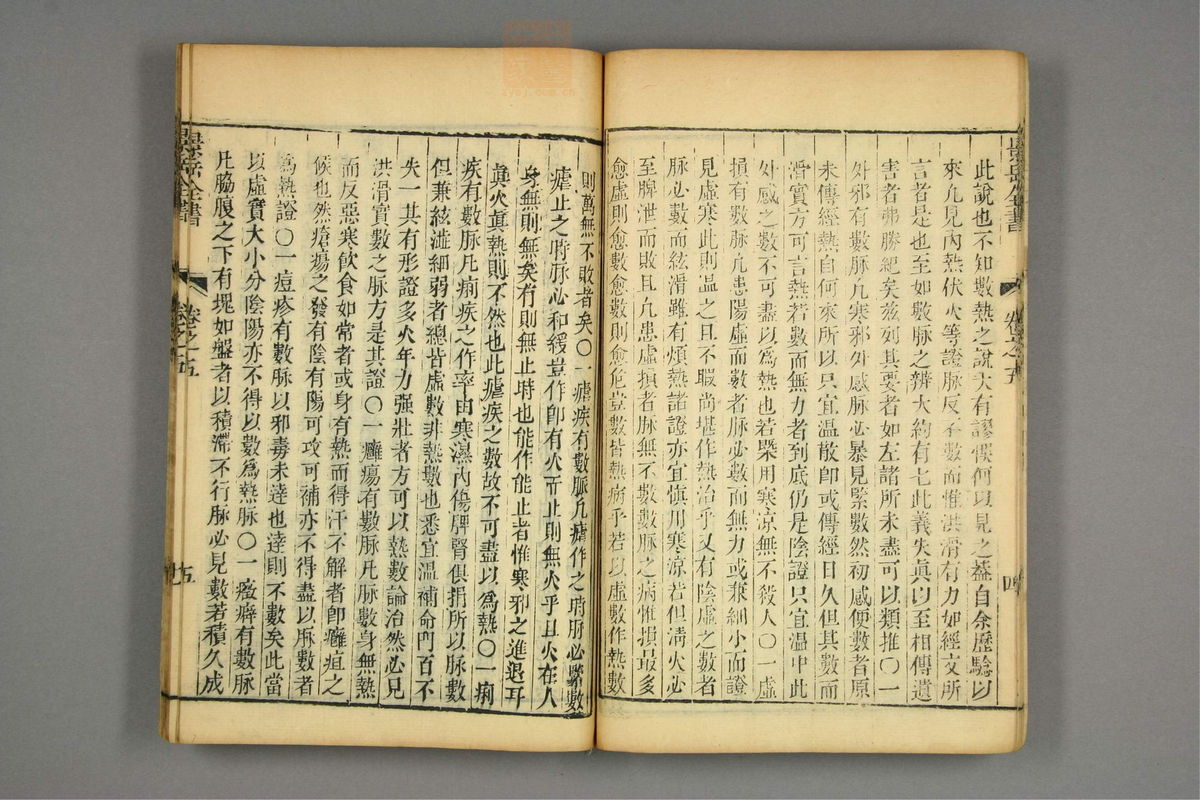 此說也不知數熱之說大有謬悞何以見之葢自余歷驗以
來凡見內熱伏火等證脈反不數而惟洪滑有力如經文所
言者是也至如數脈之辨大約有七此義失真以至相傳遺
害者弗勝紀矣茲列其要者如左諸所未盡可以類推〇一
外邪有數脈凡寒邪外感脈必暴見緊數然初感便數者原
未傳經熱自何來所以只宜溫散卽或傳經日久但其數而
滑實方可言熱若數而無力者到底仍是陰證只宜溫中此
外感之數不可盡以為熱也若槩用寒涼無不殺人〇一虛
損有數脈凡患陽虛而數者脈必數而無力或兼細小而證
見虛寒此則溫之且不暇尚堪作熱治乎又有陰虛之數者
脈必數而絃滑雖有煩熱諸證亦宜慎用寒涼若但清火必
至脾泄而敗且凡患虛損者脈無不數數脈之病惟損最多
愈虛則愈數愈數則愈危豈數皆熱病乎若以虛數作熱數
景岳全書
卷之五
四
則萬無不敗者矣〇一瘧疾有數脈凡瘧作之時脈必緊數
瘧止之時脈必和緩豈作卽有火而止則無火乎且火在人
身無則無矣有則無止時也能作能止者惟寒邪之進退耳
眞火眞熱則不然也此瘧疾之數故不可盡以為熱〇一痢
疾有數脈凡痢疾之作率由寒濕內傷脾腎俱損所以脈數
但兼絃澁細弱者總皆虛數非熱數也悉宜溫補命門百不
失一其有形證多火年力强壯者方可以熱數論治然必見
洪滑實數之脈方是其證〇一癰瘍有數脈凡脈數身無熱
而反惡寒飲食如常者或身有熱而得汗不解者卽癰疽之
候也然瘡瘍之發有陰有陽可攻可補亦不得盡以脈數者
為熱證〇一痘疹有數脈以邪毒未達也達則不數矣此當
以虛實大小分陰陽亦不得以數為熱脈〇一癥癖有數脈
凡脇腹之下有塊如盤者以積滯不行脈必見數若積久成
景岳全書
卷之五
五